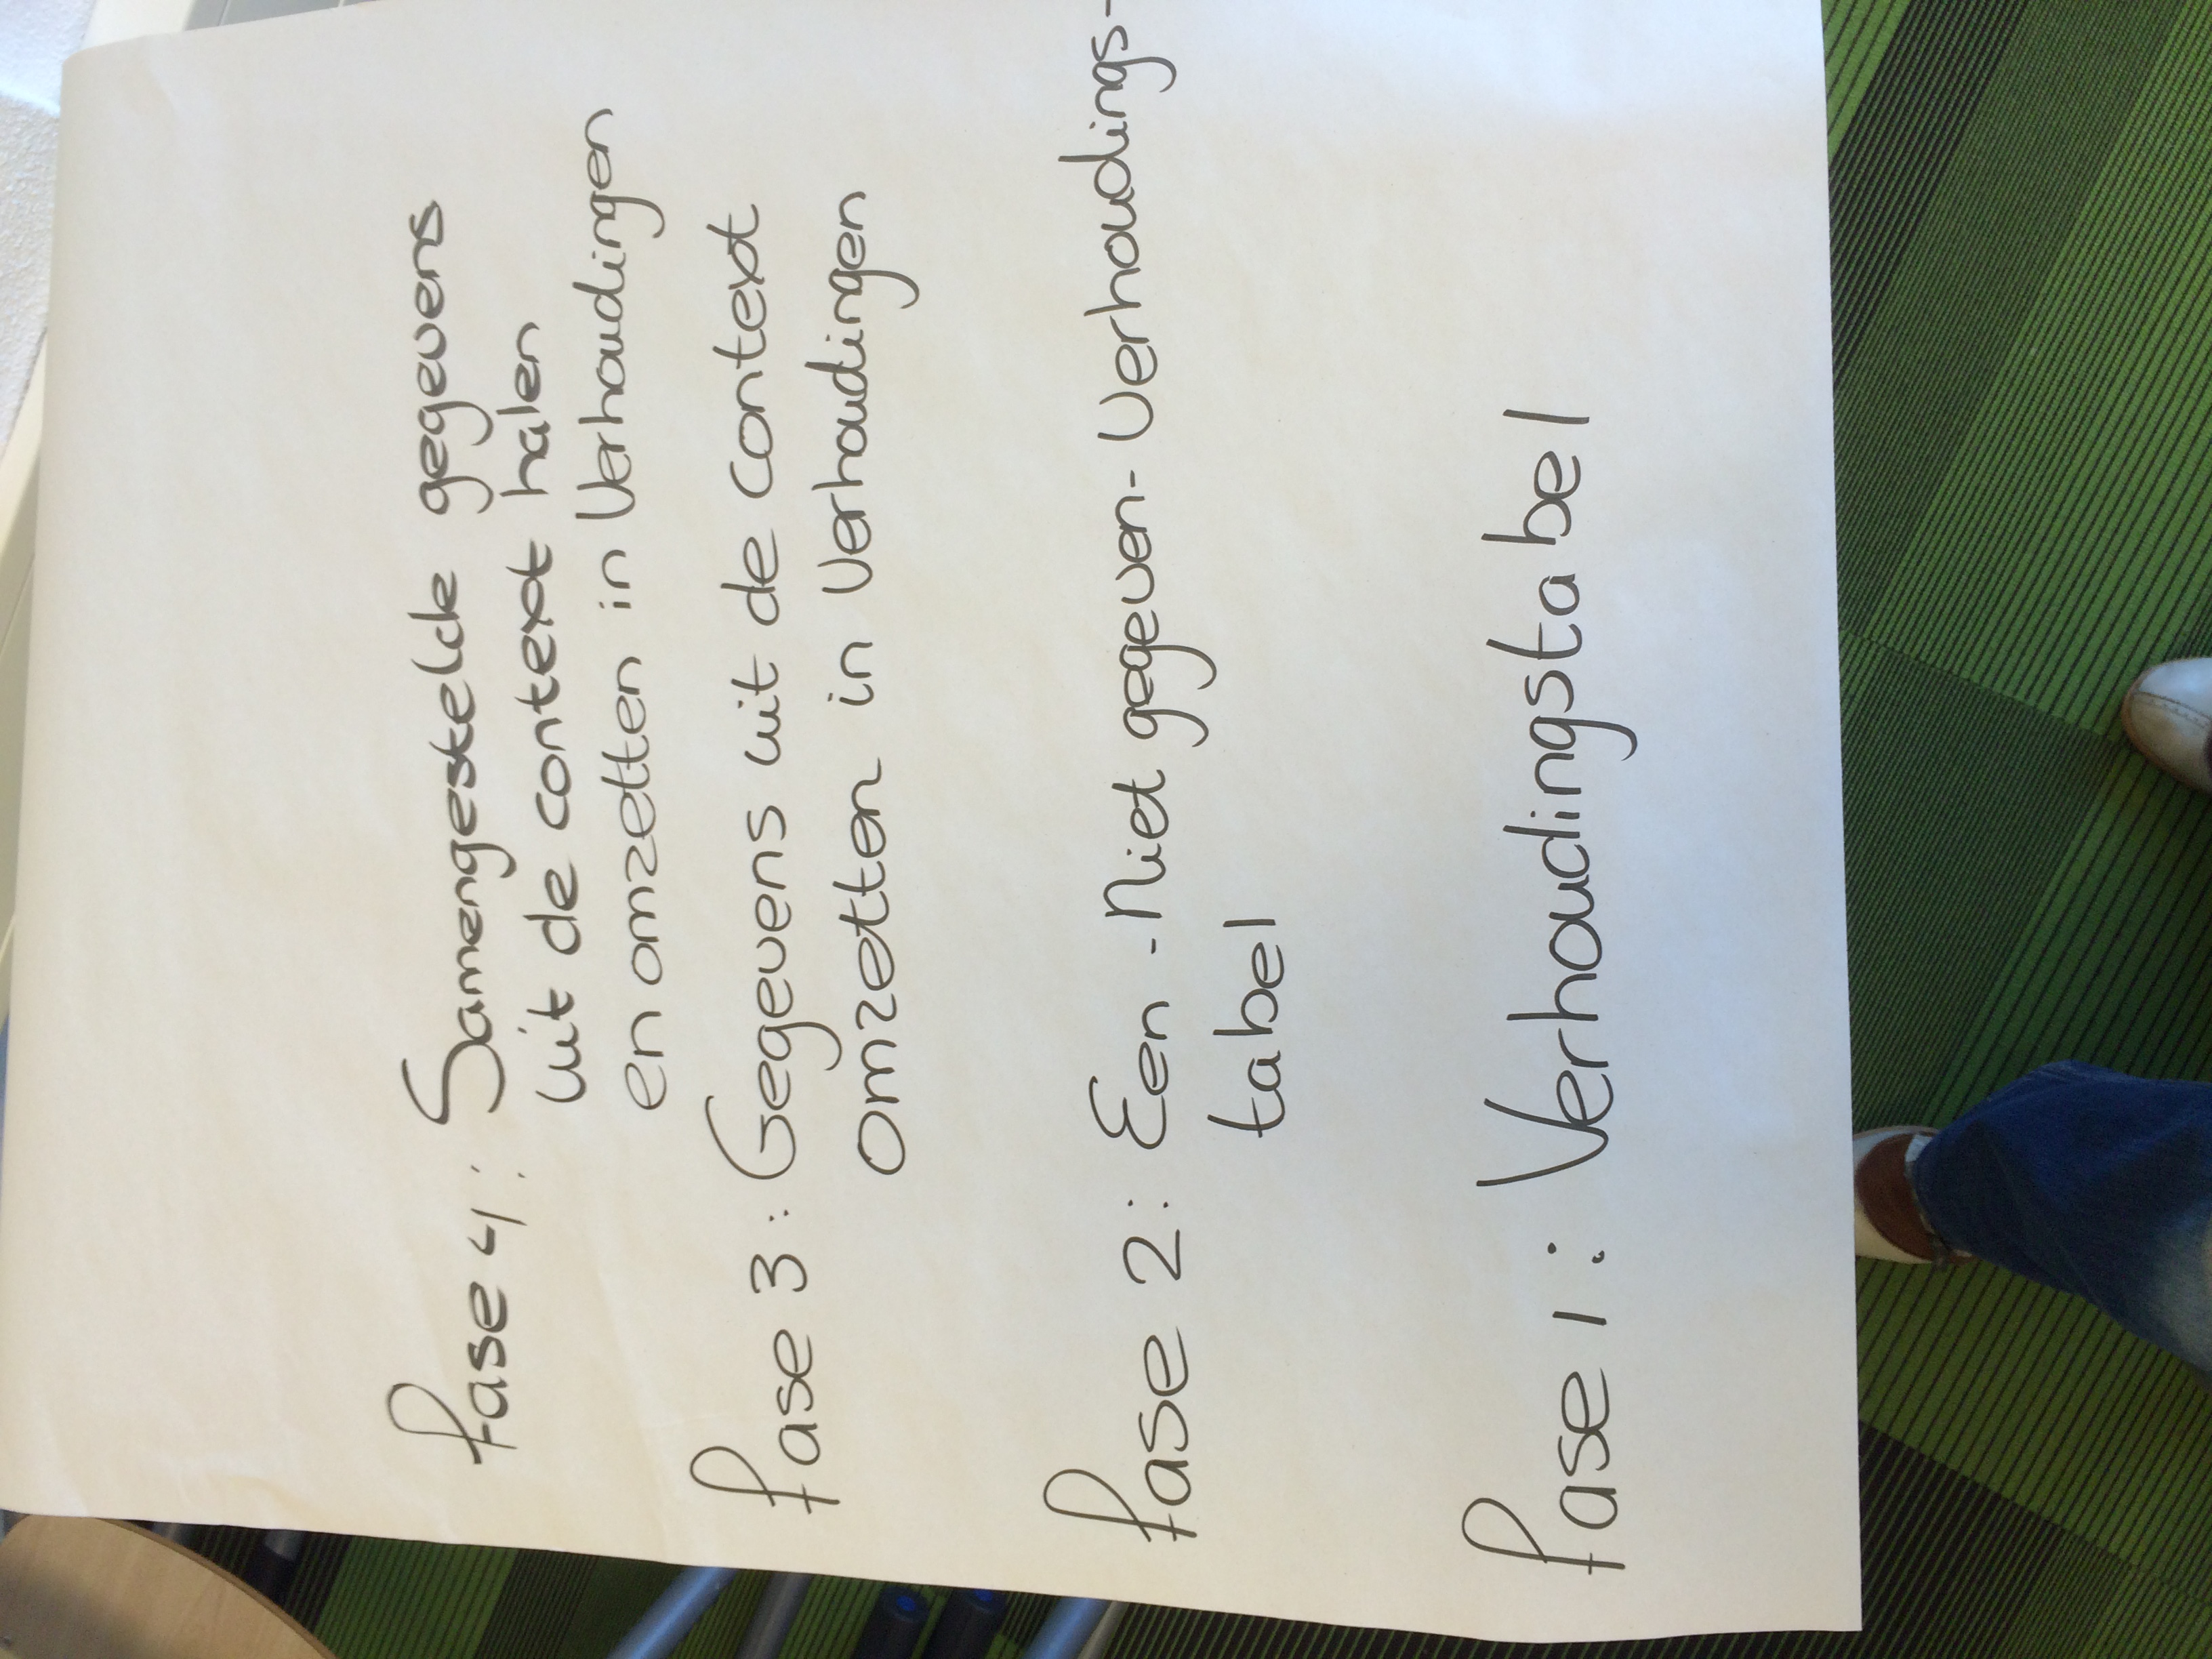 fase 4: Samengestelde gegevens
uit de context halen
en omzetten in Verhoudingen
fase 3: Gegevens uit de context
omzetten in Verhoudingen
fase 2: Een -Niet gegeven- Verhoudings-
tabel
fase 1: Verhoudingstabel